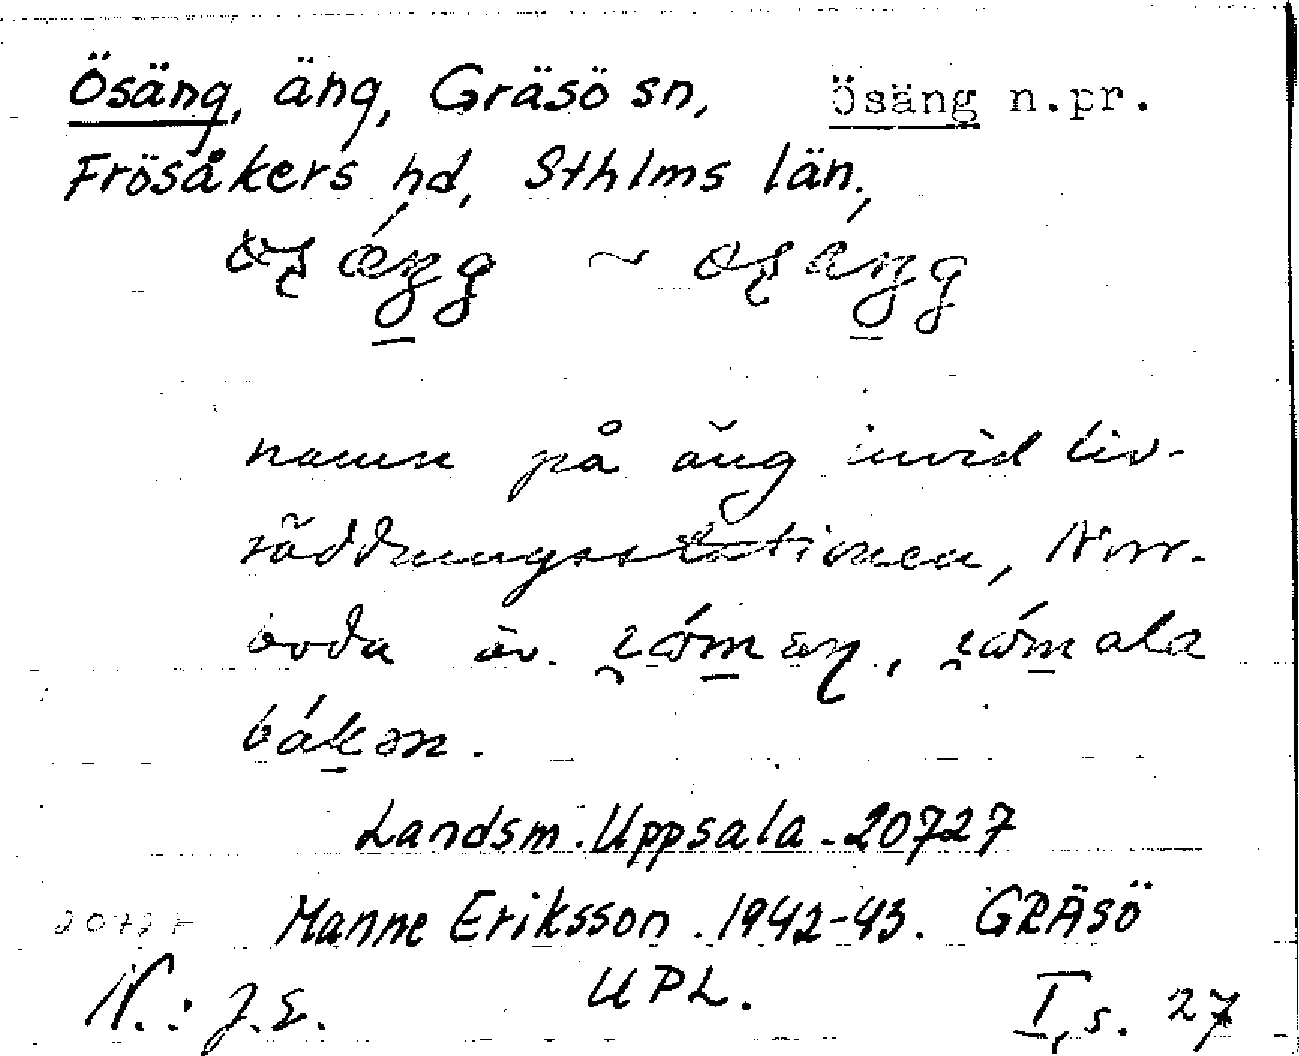 Ösäng, äng, Gräsö sn, Ösäng n.pr.
Frösåkers hd, Sthlms län,
~
namn på äng invid liv-
räddningsstationen, Norr-
boda äv.
Landsm. Uppsala. 20727
2072 Manne Eriksson. 1942-43. GRÄSÖ
N.: J.E. UPL. I, s. 27